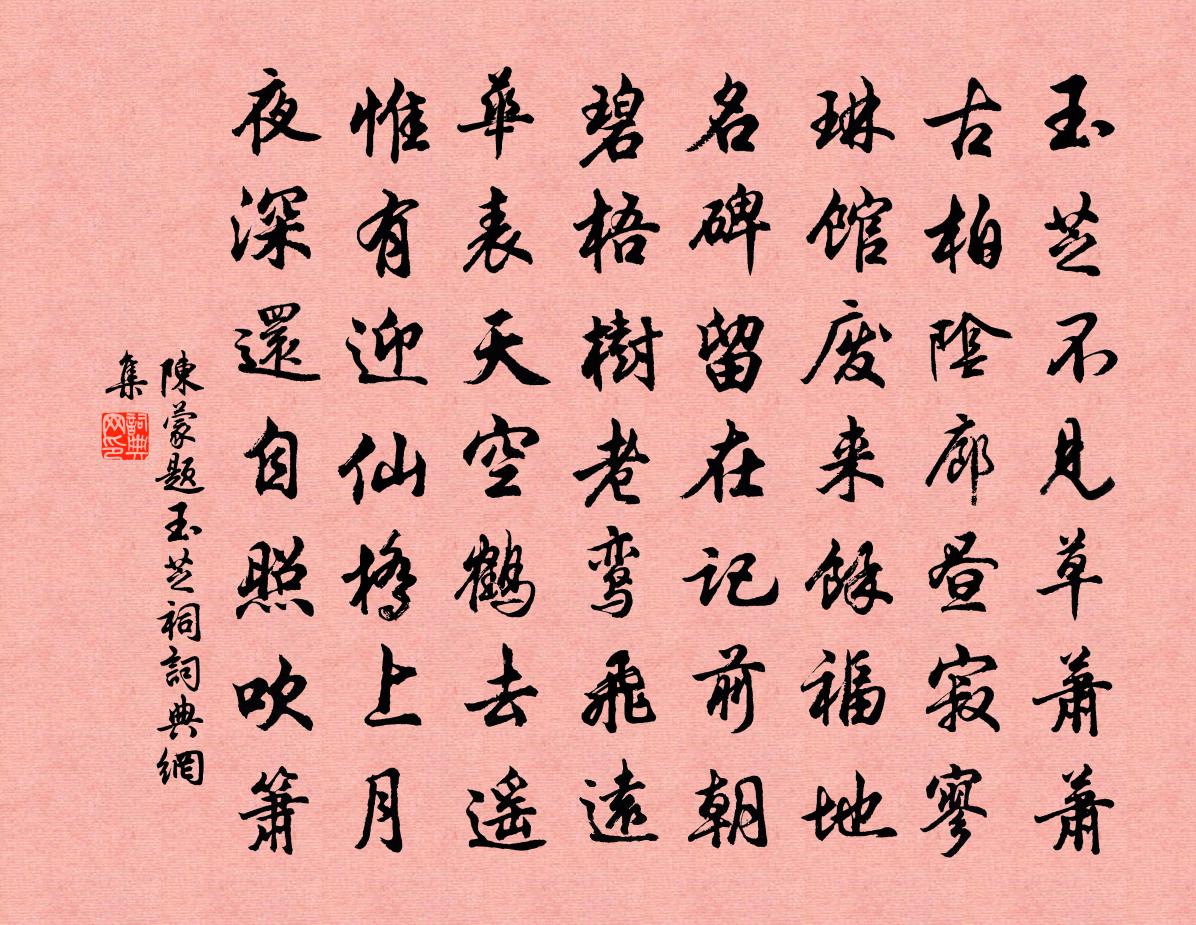 玉芝不見草萧萧
古柏陰廊昼寂寥
琳館废来餘福地
名碑留在记前朝
碧梧樹老鸾飛遠
華表天空鶴去遥
惟有迎仙橋上月
夜深還自照吹箫
陳蒙题玉芝祠詞典網
集
詞典网印